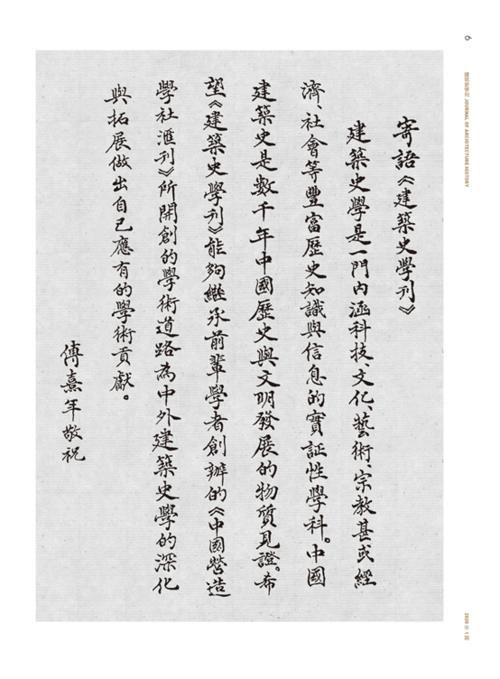 寄語《建築史學刊》
建築史學是一門內涵科技、文化、藝術、宗教甚或經
濟、社會等豐富歷史知識與信息的實証性學科。中國
建築史是數千年中國歷史與文明發展的物質見證。希
望《建築史學刊》能夠繼承前輩學者創辦的《中國營造
學社滙刊》所開創的學術道路為中外建築史學的深化
與拓展做出自己應有的學術貢獻。
傅熹年敬祝
6
JOURNAL OF ARCHITECTURE HISTORY